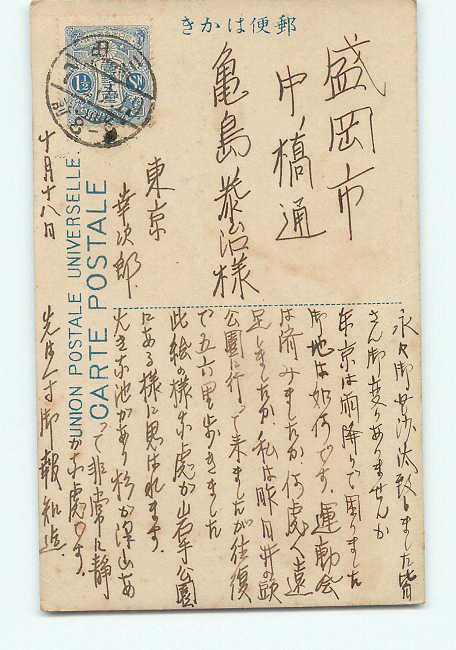 きかは便郵
UNION POSTALE UNIVERSELLE.
CARTE POSTALE
1½
盛岡市
中ノ橋通
亀島泰治様
東京
幸次郎
十月十八日
永々御無沙汰致しました皆
さん御変りありませんか
東京は雨降りで困りました
御地は如何です。運動会
は済みましたか、何処へ遠
足しましたか、私は昨日井の頭
公園に行って来ましたが往復
で五六里歩きました
此絵の様な処が岩手公園
にある様に思はれます。
大きな池があり杉が深山あ
って非常に静
かな処です。
先は一寸御報知迄